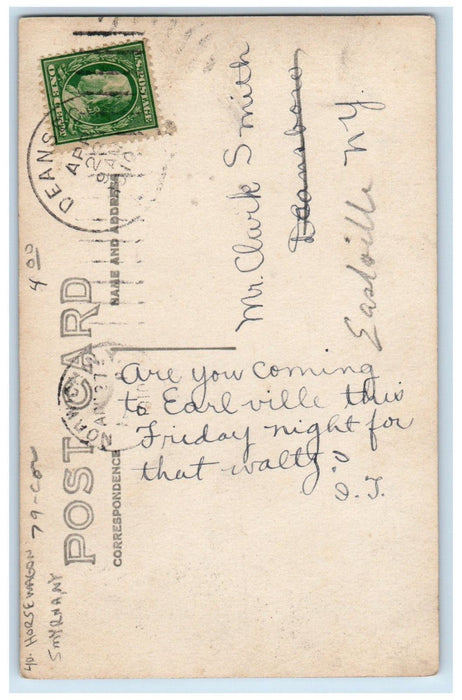 POST CARD
CORRESPONDENCE
NAME AND ADDRESS
U.S. POSTAGE
ONE CENT
DEANS
AP
Mr. Clark Smith
Deansboro
Earlville NY.
Are you coming
to Earlville this
Friday night for
that waltz?
I. T.
4 00
79-
HORSE WAGON
SMYRNA NY